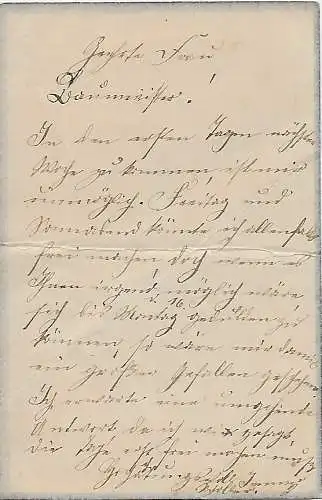 Geehrte Frau
Baumeister!
In den ersten Tagen nächster
Woche zu kommen, ist mir
unmöglich. Freitag und
Sonnabend könnte ich allenfalls
frei machen doch wenn es
Ihnen irgend möglich wäre
sich bis Montag d. 16 gedulden zu
können, so wäre mir damit
ein großer Gefallen geschehen.
Ich erwarte eine umgehende
Antwort da ich wie gesagt,
die Tage erst frei machen muß
Jenny